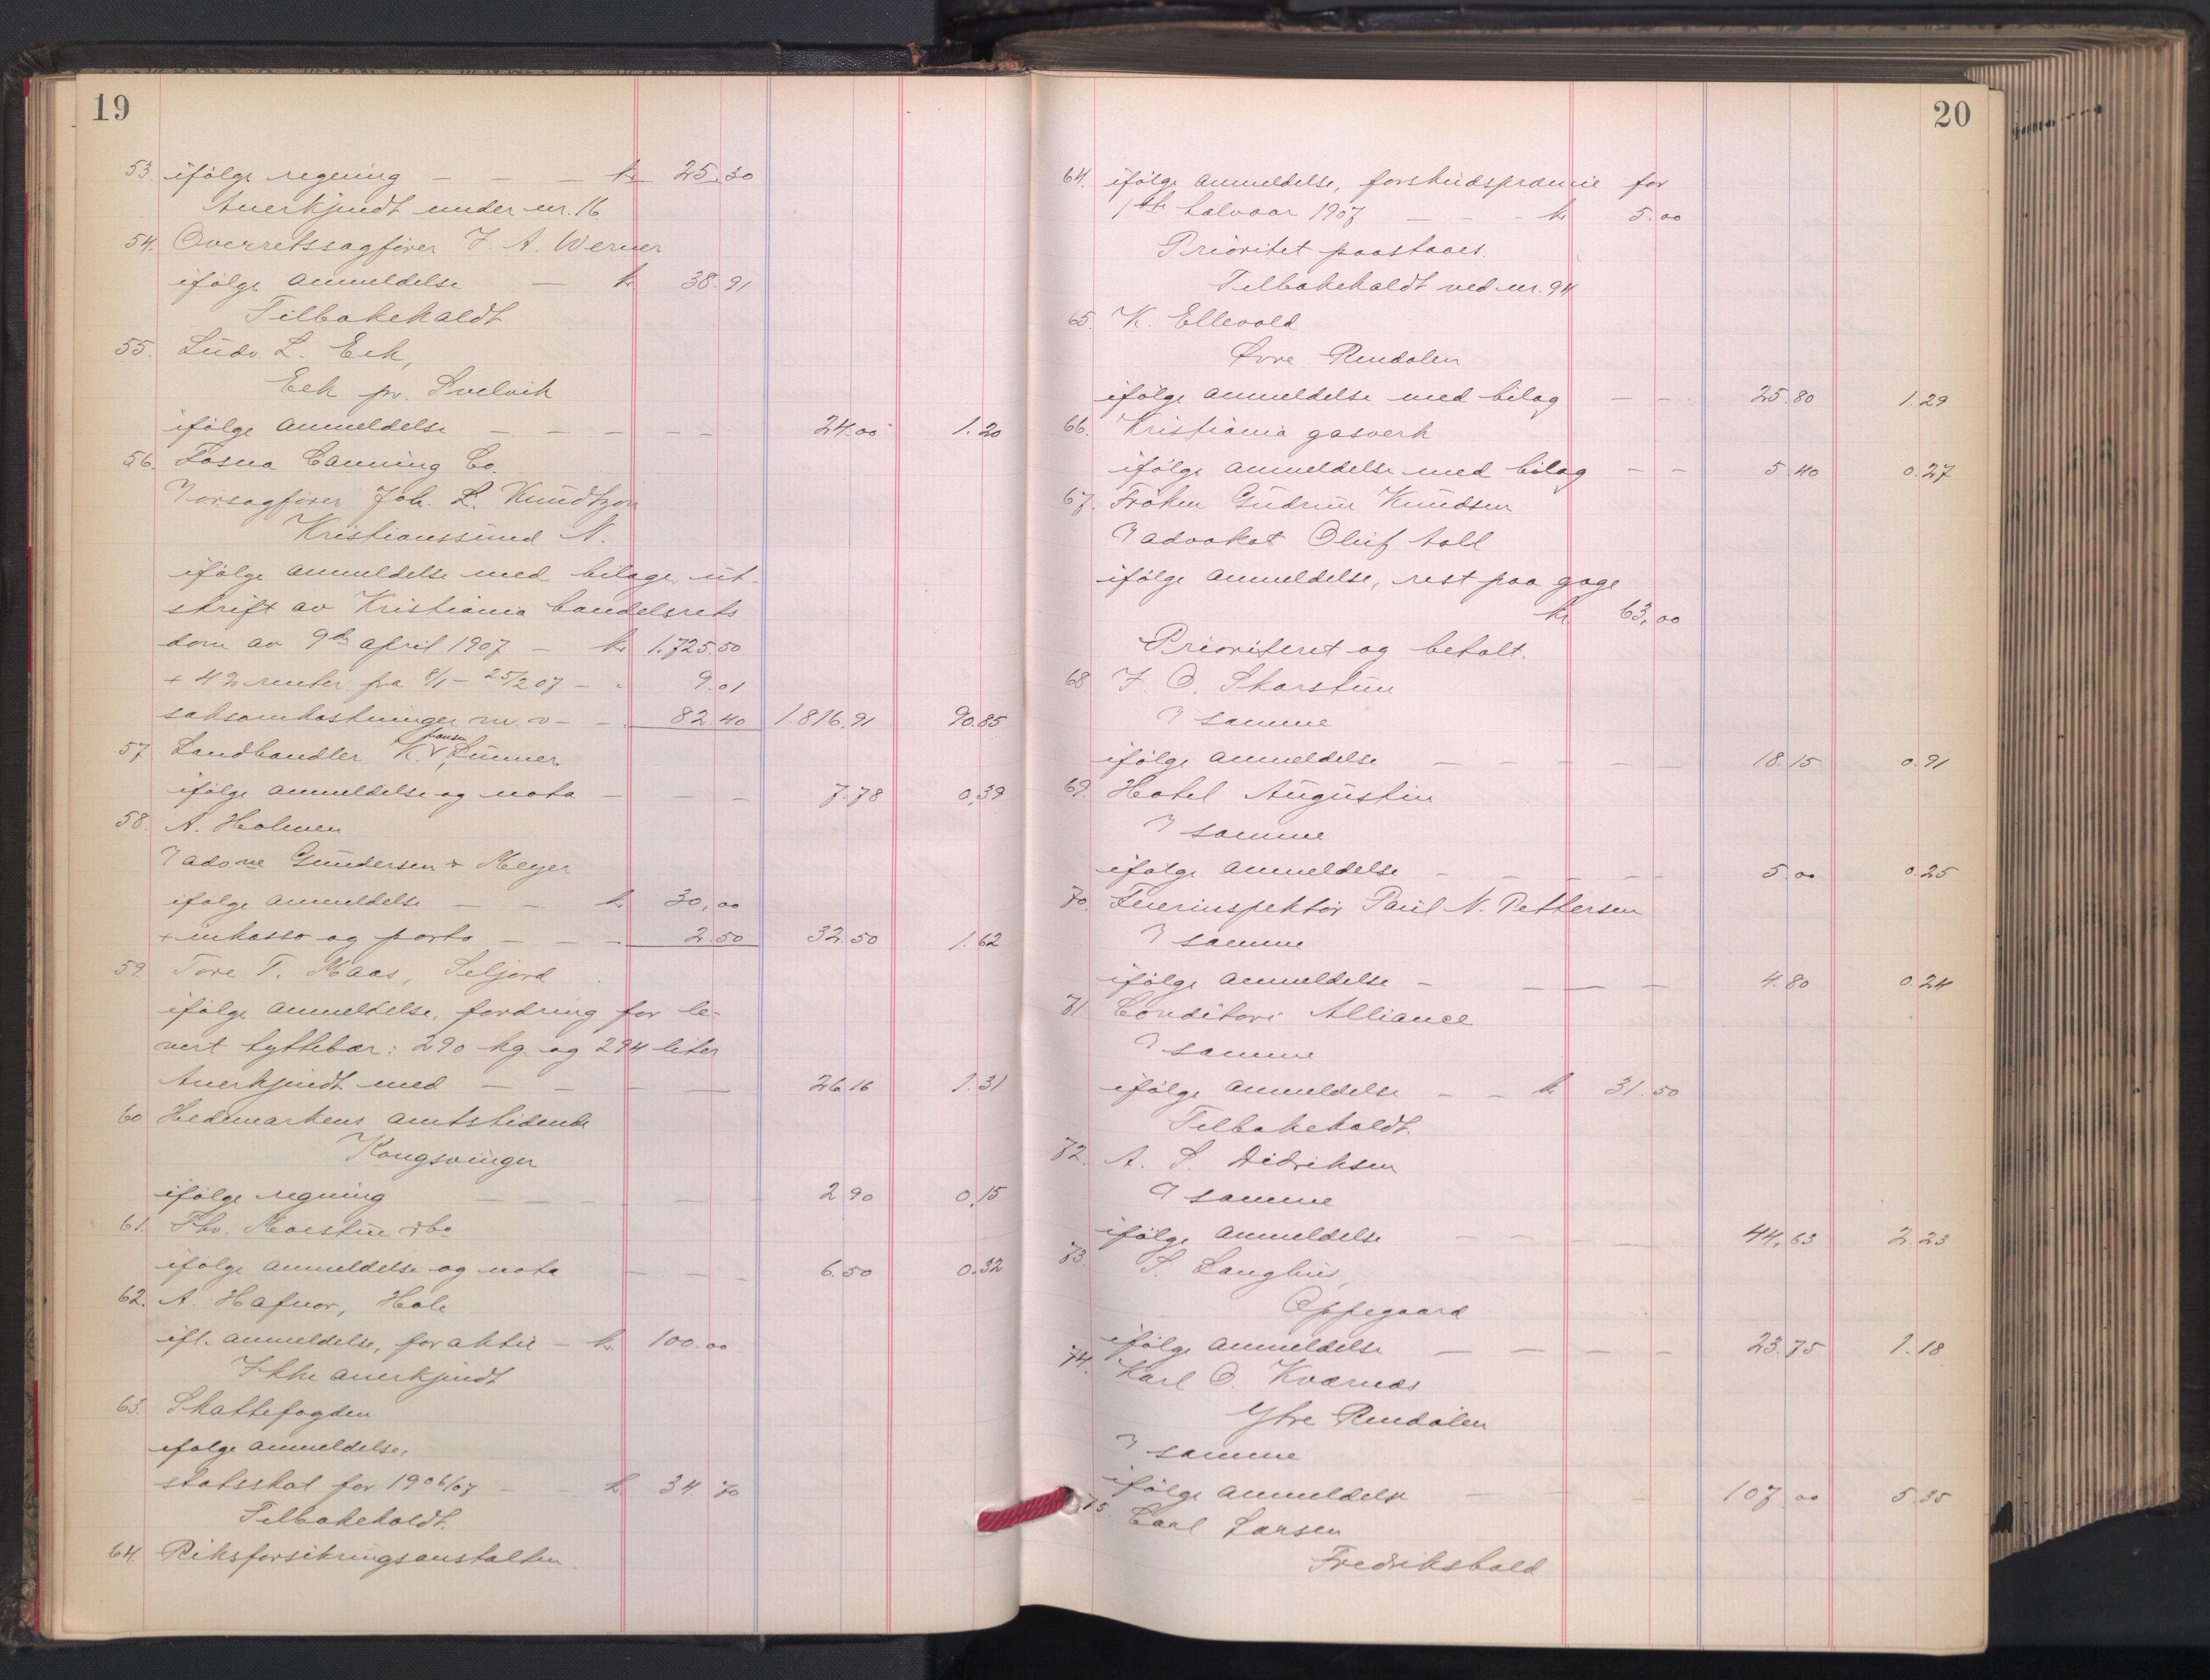 19
53. ifølge regning — — — kr 25.30
Anerkjendt under nr. 16
54. Overretssagfører J. A. Werner
ifølge anmeldelse — kr 38.91
Tilbakekaldt
55. Ludv. L. Eek,
Eek pr. Svelvik
ifølge anmeldelse — — — — — 24.00 1.20
56. Fosna Canning Co.
V orsagfører Joh. L. Knudtzon
Kristianssund N.
ifølge anmeldelse med bilage, ut-
skrift av Kristiania handelsrets
dom av 9de april 1907 — kr 1.725.50
+ 4 % renter fra 8/1 - 25/2 07 — " 9.01
saksomkostninger m. v. — - 82.40 1.816.91 90.85
57. Landhandler K. Hansen, Lunner
ifølge anmeldelse og nota — — — 7.78 0,39
58. A. Holmen
V adv.ne Gundersen & Meyer
ifølge anmeldelse — — kr 30,00
+ inkasso og porto — — — 2.50 32.50 1.62
59. Tore T. Maas, Seljord
ifølge anmeldelse, fordring for le-
vert tyttebær: 290 kg. og 294 liter
Anerkjendt med — — — — 26.16 1.31
60 Hedemarkens amtstidende
Kongsvinger
ifølge regning — — — — — 2.90 0,15
61. Thv. Moestue & Co
ifølge anmeldelse og nota — — — 6.50 0.32
62. A. Hafnor, Hole
ifl. anmeldelse, for aktie — kr. 100.00
Ikke anerkjendt
63. Skattefogden
ifølge anmeldelse,
statsskat for 1906/07 — — kr 34.70
Tilbakekaldt.
64. Riksforsikringsanstalten.
20
64. ifølge anmeldelse, forskudspræmie for
1ste halvaar 1907 — — - kr 5.00
Prioritet paastaaes.
Tilbakekaldt ved nr. 94
65. K. Ellevold
Øvre Rendalen
ifølge anmeldelse med bilag — — 25.80 1.29
66. Kristiania gasverk
ifølge anmeldelse med bilag — — 5.40 0.27
67. Frøken Gudrun Knudsen
V advokat Oluf Aall
ifølge anmeldelse, rest paa gage
kr. 63,00
Prioriteret og betalt.
68 J. O. Skarstun
V samme
ifølge anmeldelse — — — — — 18.15 0.91
69. Hotel Augustin
V samme
ifølge anmeldelse — — — — — 5.00 0.25
70. Fuerinspektør Paul N. Pettersen
V samme
ifølge anmeldelse — — — — 4.80 0.24
71 Conditori Alliance
V samme
ifølge anmeldelse — — kr 31.50
Tilbakekaldt.
72. A. S. Didriksen
V samme
ifølge anmeldelse — — — — 44,63 2.23
73. S. Langhus,
Oppegaard
ifølge anmeldelse — — — — 23.75 1.18
74. Karl O. Kværnæs
Ytre Rendalen
V samme
ifølge anmeldelse — — — 107.00 5.35
75. Carl Larsen
Fredrikshald